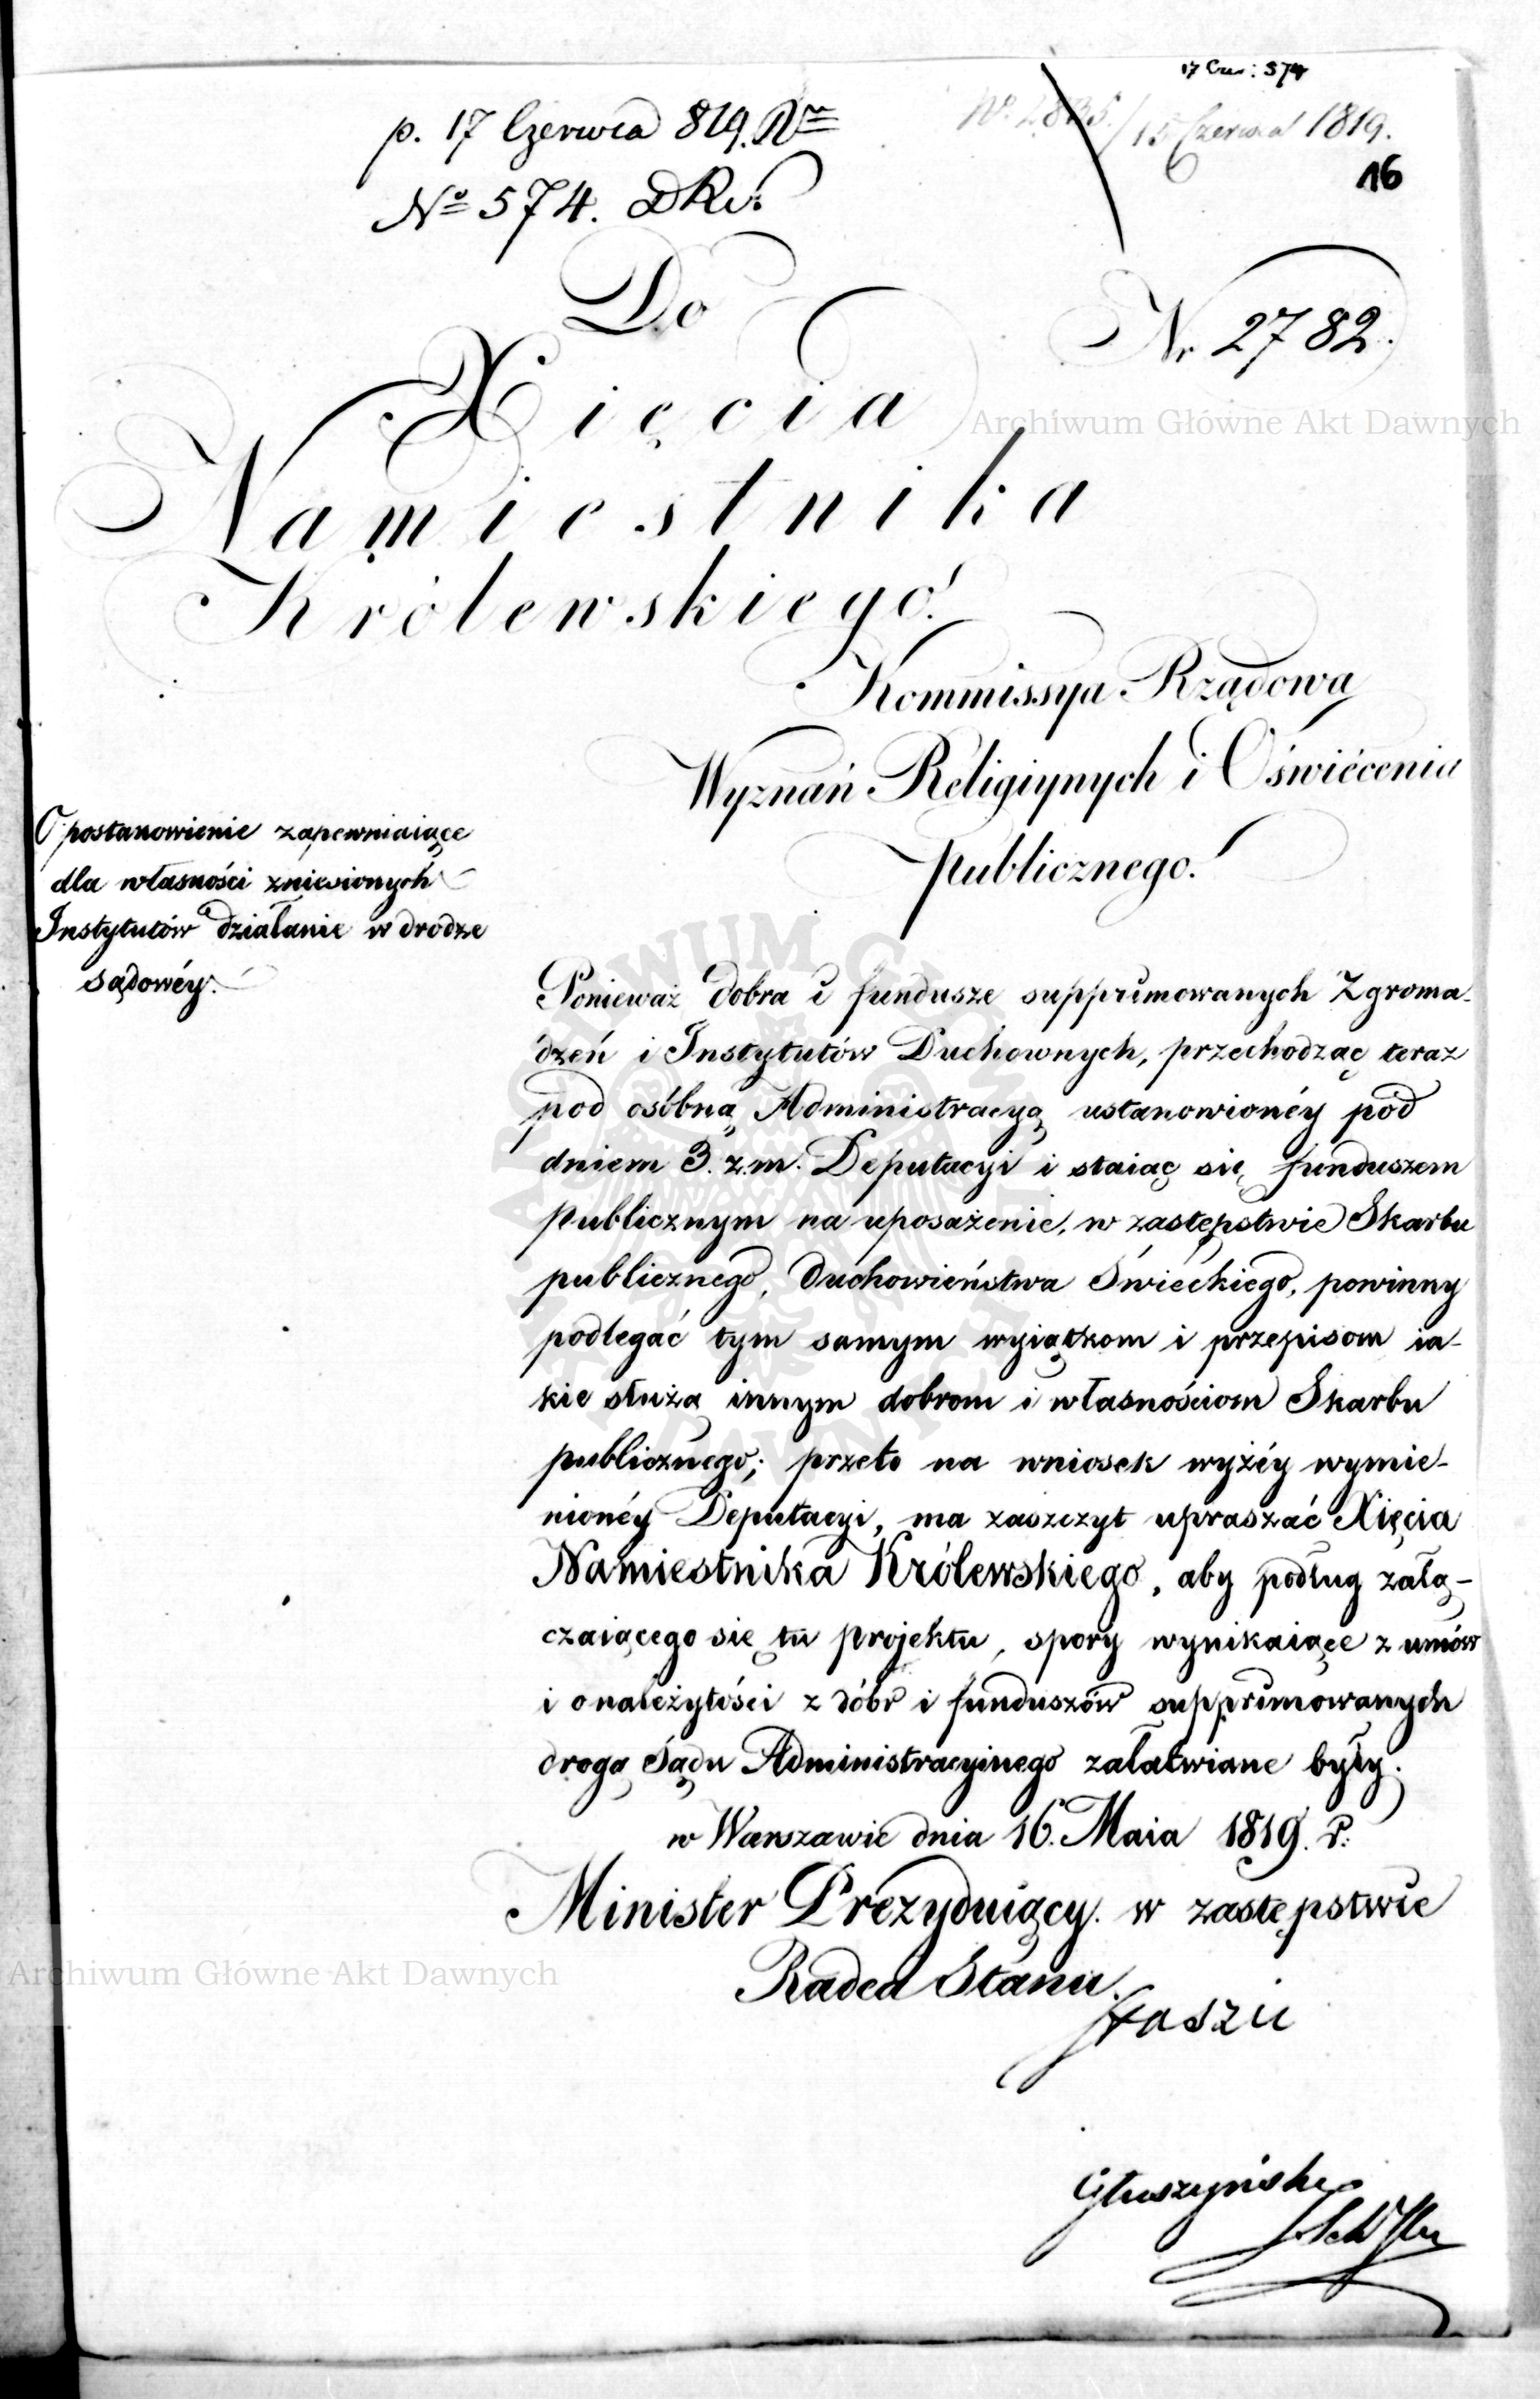 17 Czer: 574
p. 17 Czerwca 819.
15 Czerwca 1819.
16
No 574. DKu.
Do
Nr 2782.
Xięcia
Archiwum Główne Akt Dawnych
Namiestnika
Królewskiego.
Kommissya Rządowa
Wyznań Religiynych i Oświécenia
Publicznego.
O postanowienie zapewniaiące
dla własności zniesionych
Instytutów działanie w drodze
sądowéy.
Ponieważ dobra i fundusze supprimowanych Zgroma-
dzeń i Instytutów Duchownych, przechodząc teraz
pod osóbną Administracyą ustanowionéy pod
dniem 3. z.m. Deputacyi i staiąc się funduszem
publicznym na uposażenie, w zastępstwie Skarbu
publicznego, duchowieństwa Świeckiego, powinny
podlegać tym samym wyiątkom i przepisom ia-
kie służą innym dobrom i własnościom Skarbu
publicznego; przeto na wniosek wyżéy wymie-
nionéy Deputacyi, ma zaszczyt upraszać Xięcia
Namiestnika Królewskiego, aby podług załą-
czaiącego się tu projektu, spory wynikaiące z umów
i o należytości z dóbr i funduszów supprimowanych
drogą Sądu Administracyinego załatwiane były.
w Warszawie dnia 16. Maia 1819. r.
Minister Prezyduiący. w zastępstwie
Radca Stanu.
Archiwum Główne Akt Dawnych
Staszic
Głuszyński
ARCHIWUM GŁÓWNE AKT DAWNYCH